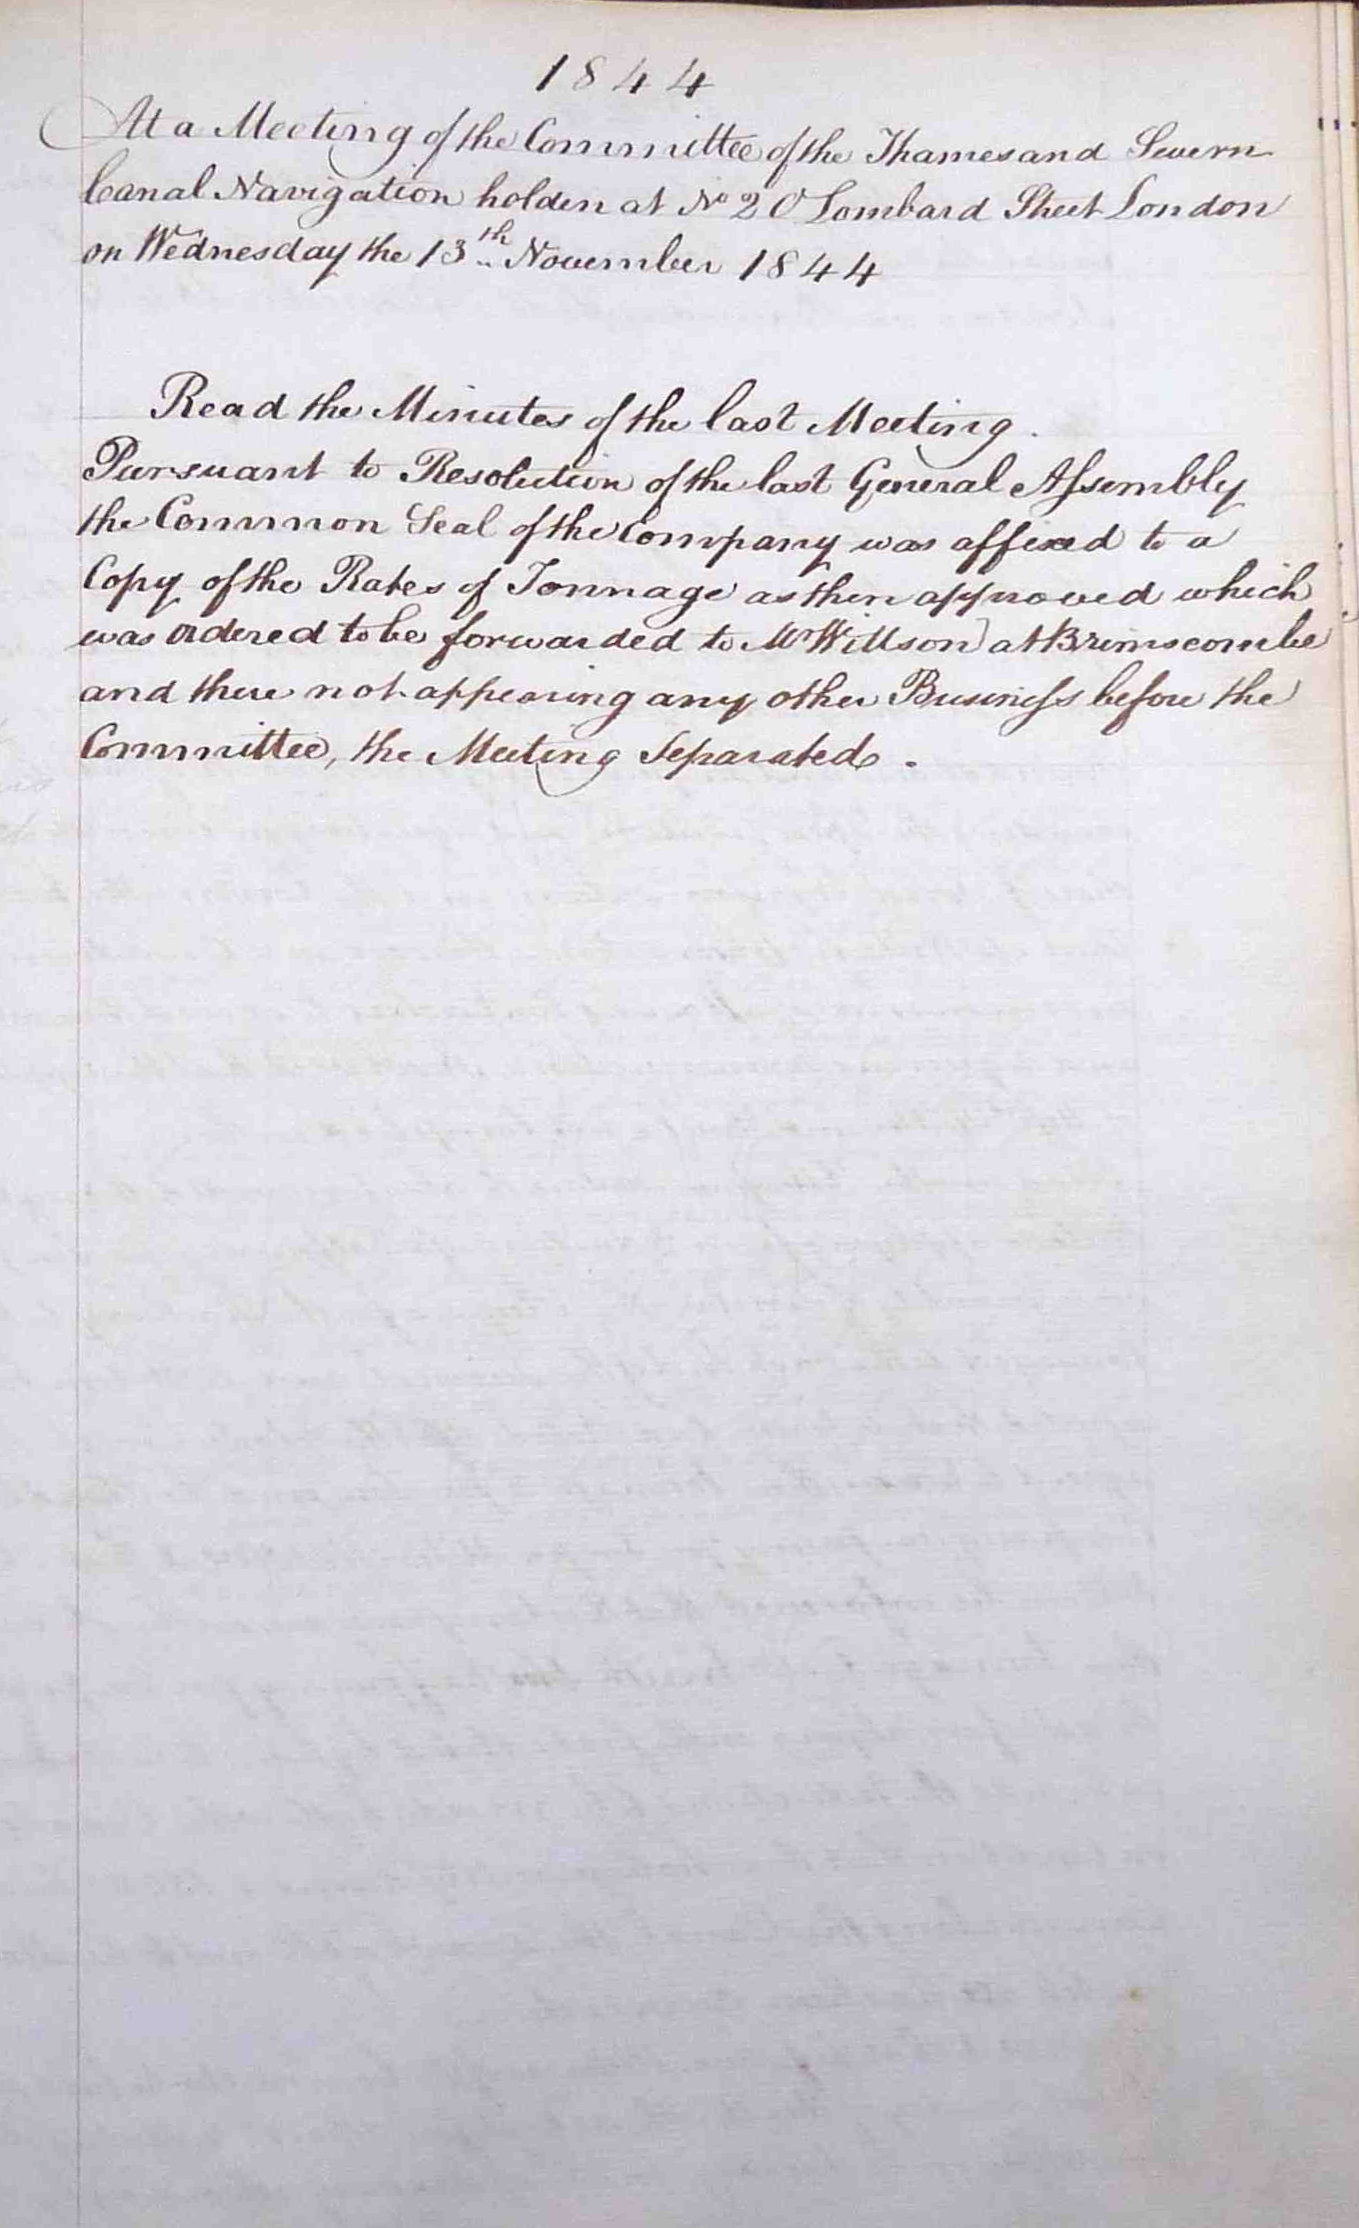 1844
At a Meeting of the Committee of the Thames and Severn
Canal Navigation holden at No 20 Lombard Street London
on Wednesday the 13th November 1844
Read the Minutes of the last Meeting.
Pursuant to Resolution of the last General Assembly
the Common Seal of the Company was affixed to a
Copy of the Rates of Tonnage as then approved which
was ordered to be forwarded to Mr Willson at Brimscombe
and there not appearing any other Business before the
Committee, the Meeting Separated.